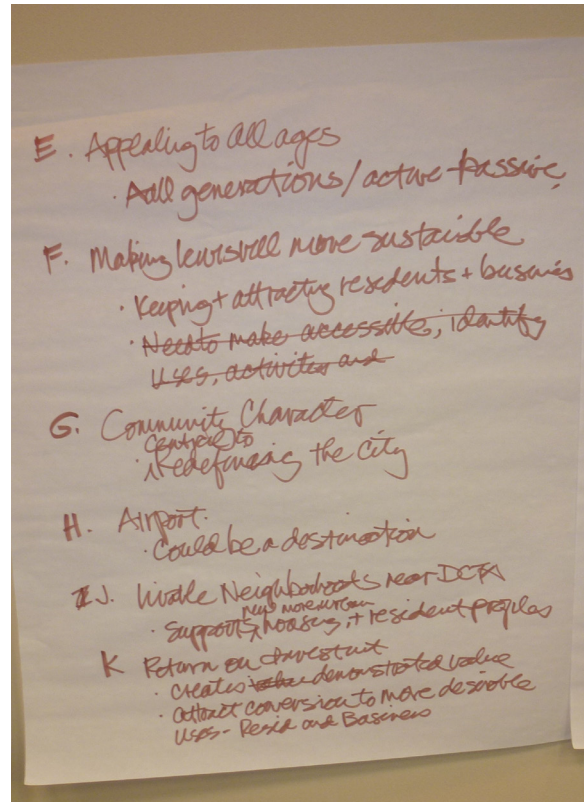 E. Appealing to all ages
· All generations / active - passive
F. Making lewisvill more sustaible
· Keeping + attracting residents + business
· Need to make accessible, identify
uses, activities and
G. Community Character
central to
· redefining the city
H. Airport.
· Could be a destination
J. livable Neighborhoods near DCTA
new more urban
· supports housing, + resident profiles
K Return on Investment
· creates demonstrated value
· attract conversion to more desirable
uses - Resid and Business